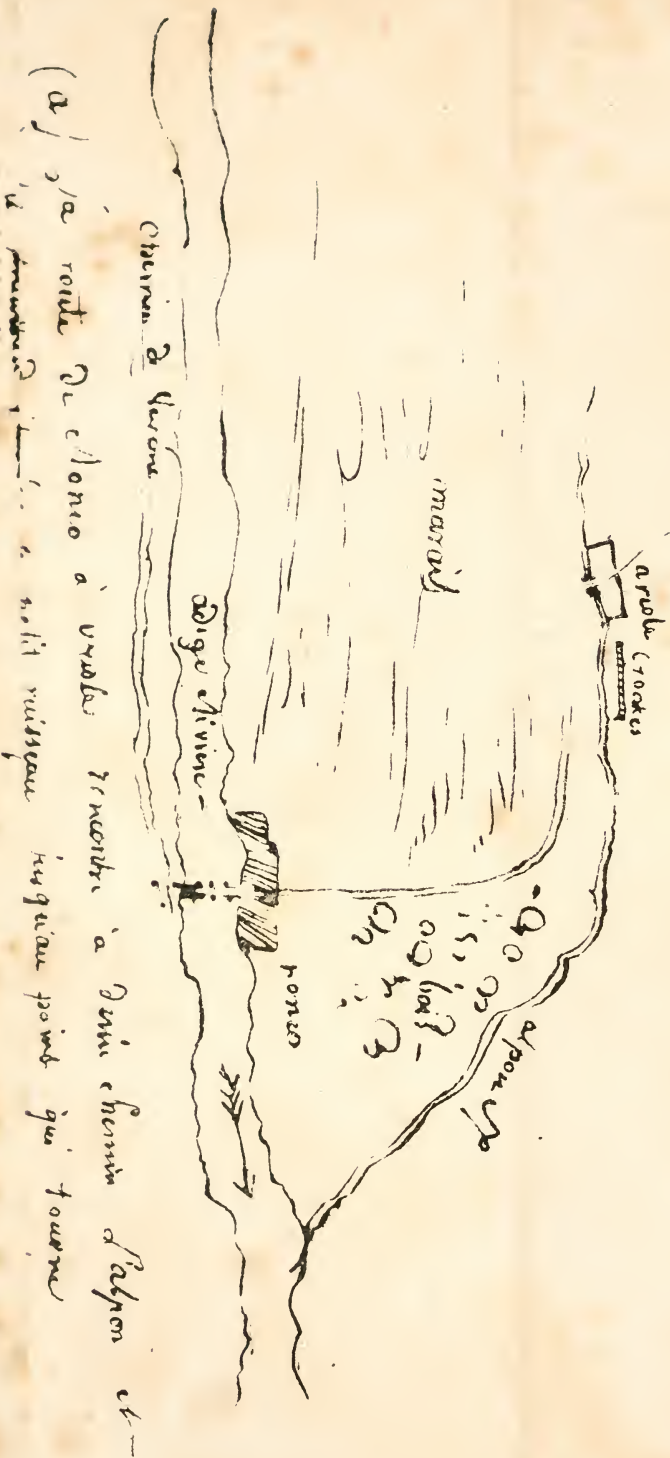 arcole (
marais
bois
alpon
ronco
adige rivière
chemin de Verone
(a) la route de Ronco à arcole rencontre à demi chemin l'alpon et
petit ruisseau jusqu'au point qui tourne